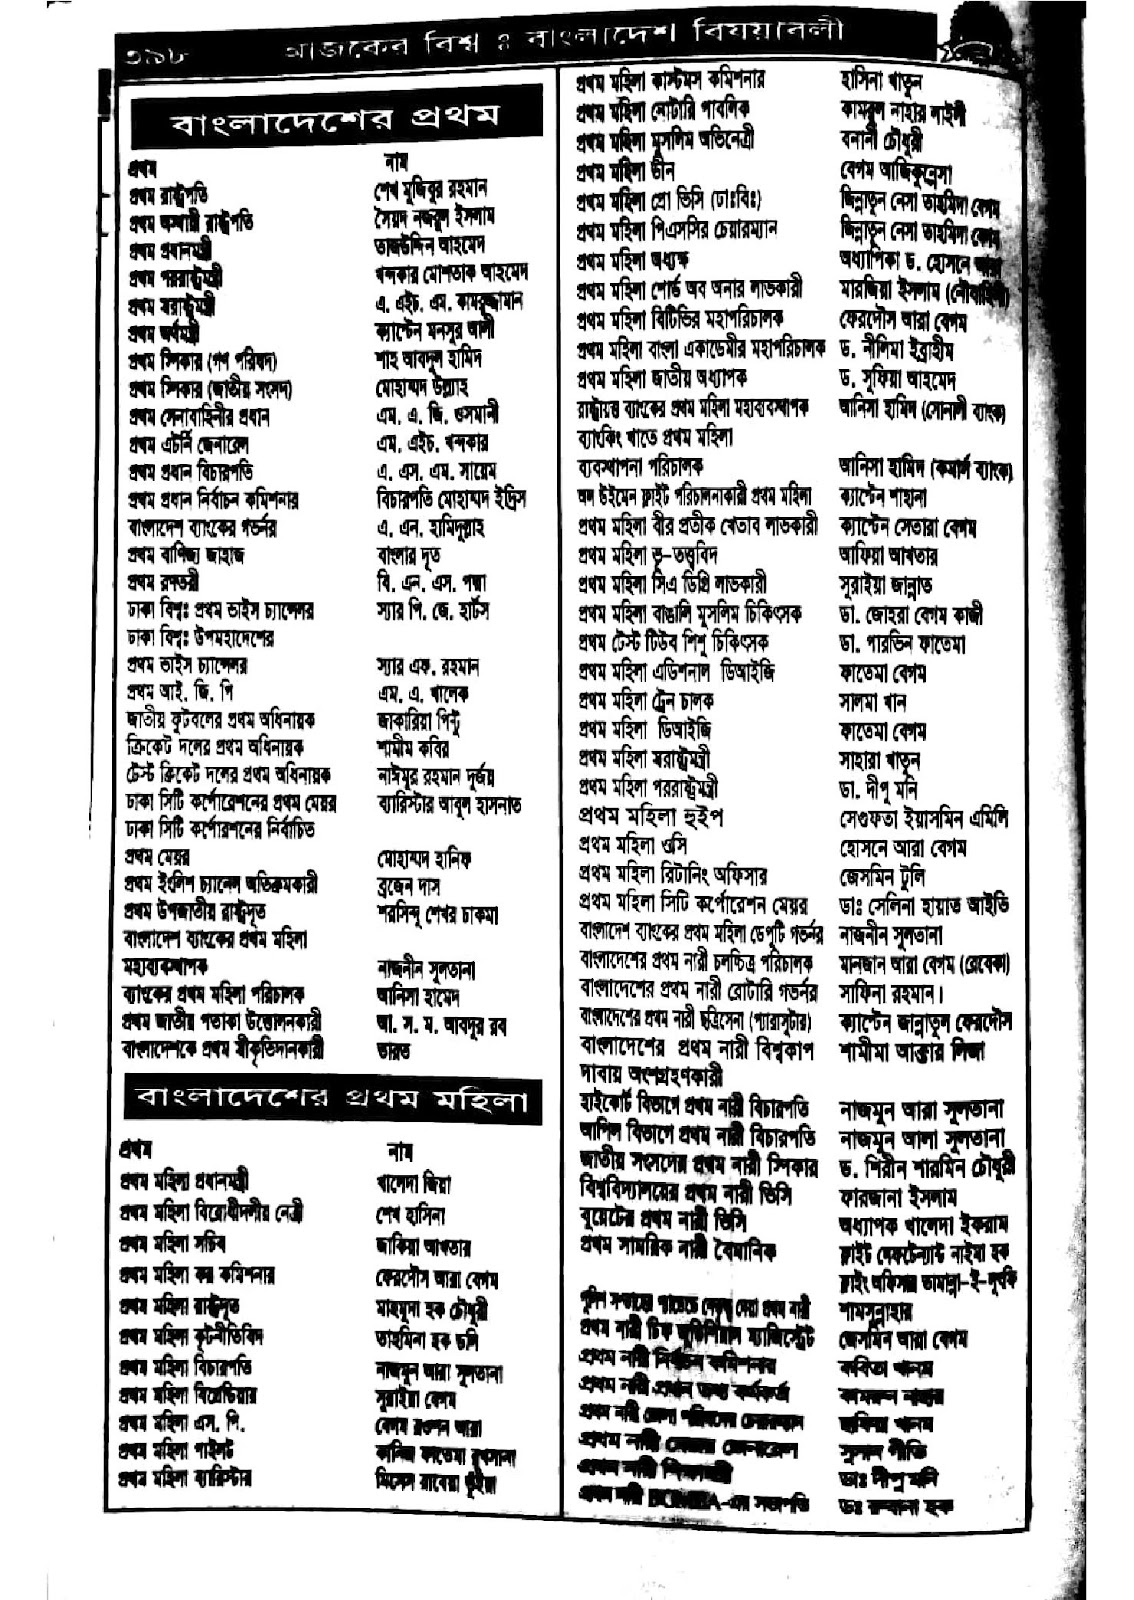 ৩৯৮ আজকের বিশ্ব ঃ বাংলাদেশ বিষয়াবলী
বাংলাদেশের প্রথম
প্রথম নাম
প্রথম রাষ্ট্রপতি শেখ মুজিবুর রহমান
প্রথম অস্থায়ী রাষ্ট্রপতি সৈয়দ নজরুল ইসলাম
প্রথম প্রধানমন্ত্রী তাজউদ্দিন আহমেদ
প্রথম পররাষ্ট্রমন্ত্রী খন্দকার মোশতাক আহমেদ
প্রথম স্বরাষ্ট্রমন্ত্রী এ. এইচ. এম. কামরুজ্জামান
প্রথম অর্থমন্ত্রী ক্যাপ্টেন মনসুর আলী
প্রথম স্পিকার (গণ পরিষদ) শাহ আবদুল হামিদ
প্রথম স্পিকার (জাতীয় সংসদ) মোহাম্মদ উল্ল্যাহ
প্রথম সেনাবাহিনীর প্রধান এম. এ. জি. ওসমানী
প্রথম এটর্নি জেনারেল এম. এইচ. খন্দকার
প্রথম প্রধান বিচারপতি এ. এস. এম. সায়েম
প্রথম প্রধান নির্বাচন কমিশনার বিচারপতি মোহাম্মদ ইদ্রিস
বাংলাদেশ ব্যাংকের গভর্নর এ. এন. হামিদুল্লাহ
প্রথম বাণিজ্য জাহাজ বাংলার দূত
প্রথম রণতরী বি. এন. এস. পদ্মা
ঢাকা বিশ্বঃ প্রথম ভাইস চ্যান্সেলর স্যার পি. জে. হার্টস
ঢাকা বিশ্বঃ উপমহাদেশের
প্রথম ভাইস চ্যান্সেলর স্যার এফ. রহমান
প্রথম আই. জি. পি এম. এ. খালেক
জাতীয় ফুটবলের প্রথম অধিনায়ক জাকারিয়া পিন্টু
ক্রিকেট দলের প্রথম অধিনায়ক শামীম কবির
টেস্ট ক্রিকেট দলের প্রথম অধিনায়ক নাঈমুর রহমান দূর্জয়
ঢাকা সিটি কর্পোরেশনের প্রথম মেয়র ব্যারিস্টার আবুল হাসনাত
ঢাকা সিটি কর্পোরশনের নির্বাচিত
প্রথম মেয়র মোহাম্মদ হানিফ
প্রথম ইংলিশ চ্যানেল অতিক্রমকারী ব্রজেন দাস
প্রথম উপজাতীয় রাষ্ট্রদূত শরদিন্দু শেখর চাকমা
বাংলাদেশ ব্যাংকের প্রথম মহিলা
মহাব্যবস্থাপক নাজনীন সুলতানা
ব্যাংকের প্রথম মহিলা পরিচালক আনিসা হামেদ
প্রথম জাতীয় পতাকা উত্তোলনকারী আ. স. ম. আবদুর রব
বাংলাদেশকে প্রথম স্বীকৃতিদানকারী ভারত
বাংলাদেশের প্রথম মহিলা
প্রথম নাম
প্রথম মহিলা প্রধানমন্ত্রী খালেদা জিয়া
প্রথম মহিলা বিরোধীদলীয় নেত্রী শেখ হাসিনা
প্রথম মহিলা সচিব জাকিয়া আখতার
প্রথম মহিলা কর কমিশনার ফেরদৌস আরা বেগম
প্রথম মহিলা রাষ্ট্রদূত মাহমুদা হক চৌধুরী
প্রথম মহিলা কূটনীতিবিদ তাহমিনা হক ডলি
প্রথম মহিলা বিচারপতি নাজমুন আরা সুলতানা
প্রথম মহিলা বিগ্রেডিয়ার সুরাইয়া বেগম
প্রথম মহিলা এস. পি. বেগম রওশন আরা
প্রথম মহিলা পাইলট কানিজ ফাতেমা রুখসানা
প্রথম মহিলা ব্যারিস্টার মিসেস রাবেয়া ভূঁইয়া
প্রথম মহিলা কাস্টমস কমিশনার হাসিনা খাতুন
প্রথম মহিলা নোটারি পাবলিক কামরুল নাহার লাইলী
প্রথম মহিলা মুসলিম অভিনেত্রী বনানী চৌধুরী
প্রথম মহিলা ডীন বেগম আজিজুন্নেসা
প্রথম মহিলা প্রো ভিসি (ঢাঃবিঃ) জিন্নাতুন নেসা তাহমিদা বেগম
প্রথম মহিলা পিএসসির চেয়ারম্যান জিন্নাতুন নেসা তাহমিদা বেগম
প্রথম মহিলা অধ্যক্ষ অধ্যাপিকা ড. হোসনে আরা
প্রথম মহিলা শোর্ড অব অনার লাভকারী মারজিয়া ইসলাম (নৌবাহিনী)
প্রথম মহিলা বিটিভির মহাপরিচালক ফেরদৌস আরা বেগম
প্রথম মহিলা বাংলা একাডেমীর মহাপরিচালক ড. নীলিমা ইব্রাহীম
প্রথম মহিলা জাতীয় অধ্যাপক ড. সুফিয়া আহমেদ
রাষ্ট্রায়ত্ত ব্যাংকের প্রথম মহিলা মহাব্যবস্থাপক আনিসা হামিদ (সোনালী ব্যাংক)
ব্যাংকিং খাতে প্রথম মহিলা
ব্যবস্থাপনা পরিচালক আনিসা হামিদ (কমার্স ব্যাংক)
অল উইমেন ফ্লাইট পরিচালনাকারী প্রথম মহিলা ক্যাপ্টেন শাহানা
প্রথম মহিলা বীর প্রতীক খেতাব লাভকারী ক্যাপ্টেন সেতারা বেগম
প্রথম মহিলা ভূ-তত্ত্ববিদ আফিয়া আখতার
প্রথম মহিলা সিএ ডিগ্রি লাভকারী সুরাইয়া জান্নাত
প্রথম মহিলা বাঙালি মুসলিম চিকিৎসক ডা. জোহরা বেগম কাজী
প্রথম টেস্ট টিউব শিশু চিকিৎসক ডা. পারভিন ফাতেমা
প্রথম মহিলা এডিশনাল ডিআইজি ফাতেমা বেগম
প্রথম মহিলা ট্রেন চালক সালমা খান
প্রথম মহিলা ডিআইজি ফাতেমা বেগম
প্রথম মহিলা স্বরাষ্ট্রমন্ত্রী সাহারা খাতুন
প্রথম মহিলা পররাষ্ট্রমন্ত্রী ডা. দীপু মনি
প্রথম মহিলা হুইপ সেগুফতা ইয়াসমিন এমিলি
প্রথম মহিলা ওসি হোসনে আরা বেগম
প্রথম মহিলা রিটানিং অফিসার জেসমিন টুলি
প্রথম মহিলা সিটি কর্পোরেশন মেয়র ডাঃ সেলিনা হায়াত আইভি
বাংলাদেশ ব্যাংকের প্রথম মহিলা ডেপুটি গভর্নর নাজনীন সুলতানা
বাংলাদেশের প্রথম নারী চলচ্চিত্র পরিচালক মানজান আরা বেগম (রেবেকা)
বাংলাদেশের প্রথম নারী রোটারি গভর্নর সাফিনা রহমান।
বাংলাদেশের প্রথম নারী ছত্রিসেনা (প্যারাসুটার) ক্যাপ্টেন জান্নাতুল ফেরদৌস
বাংলাদেশের প্রথম নারী বিশ্বকাপ শামীমা আক্তার লিজা
দাবায় অংশগ্রহণকারী
হাইকোর্ট বিভাগে প্রথম নারী বিচারপতি নাজমুন আরা সুলতানা
আপিল বিভাগে প্রথম নারী বিচারপতি নাজমুন আলা সুলতানা
জাতীয় সংসদের প্রথম নারী স্পিকার ড. শিরীন শারমিন চৌধুরী
বিশ্ববিদ্যালয়ের প্রথম নারী ভিসি ফারজানা ইসলাম
বুয়েটের প্রথম নারী ভিসি অধ্যাপক খালেদা ইকরাম
প্রথম সামরিক নারী বৈমানিক ফ্লাইট লেফটেন্যান্ট নাইমা হক
ফ্লাইং অফিসার তামান্না-ই-লুৎফি
পুলিশ সপ্তাহের প্যারেডে নেতৃত্ব দেয়া প্রথম নারী শামসুন্নাহার
প্রথম নারী চিফ জুডিশিয়াল ম্যাজিস্ট্রেট জেসমিন আরা বেগম
প্রথম নারী নির্বাচন কমিশনার কবিতা খানম
প্রথম নারী প্রধান তথ্য কর্মকর্তা কামরুন নাহার
প্রথম নারী জেলা পরিষদের চেয়ারম্যান খানম
প্রথম নারী মেজর জেনারেল সুসান গীতি
প্রথম নারী শিক্ষামন্ত্রী ডাঃ দীপু মনি
প্রথম নারী -এর সভাপতি ডঃ রুবানা হক